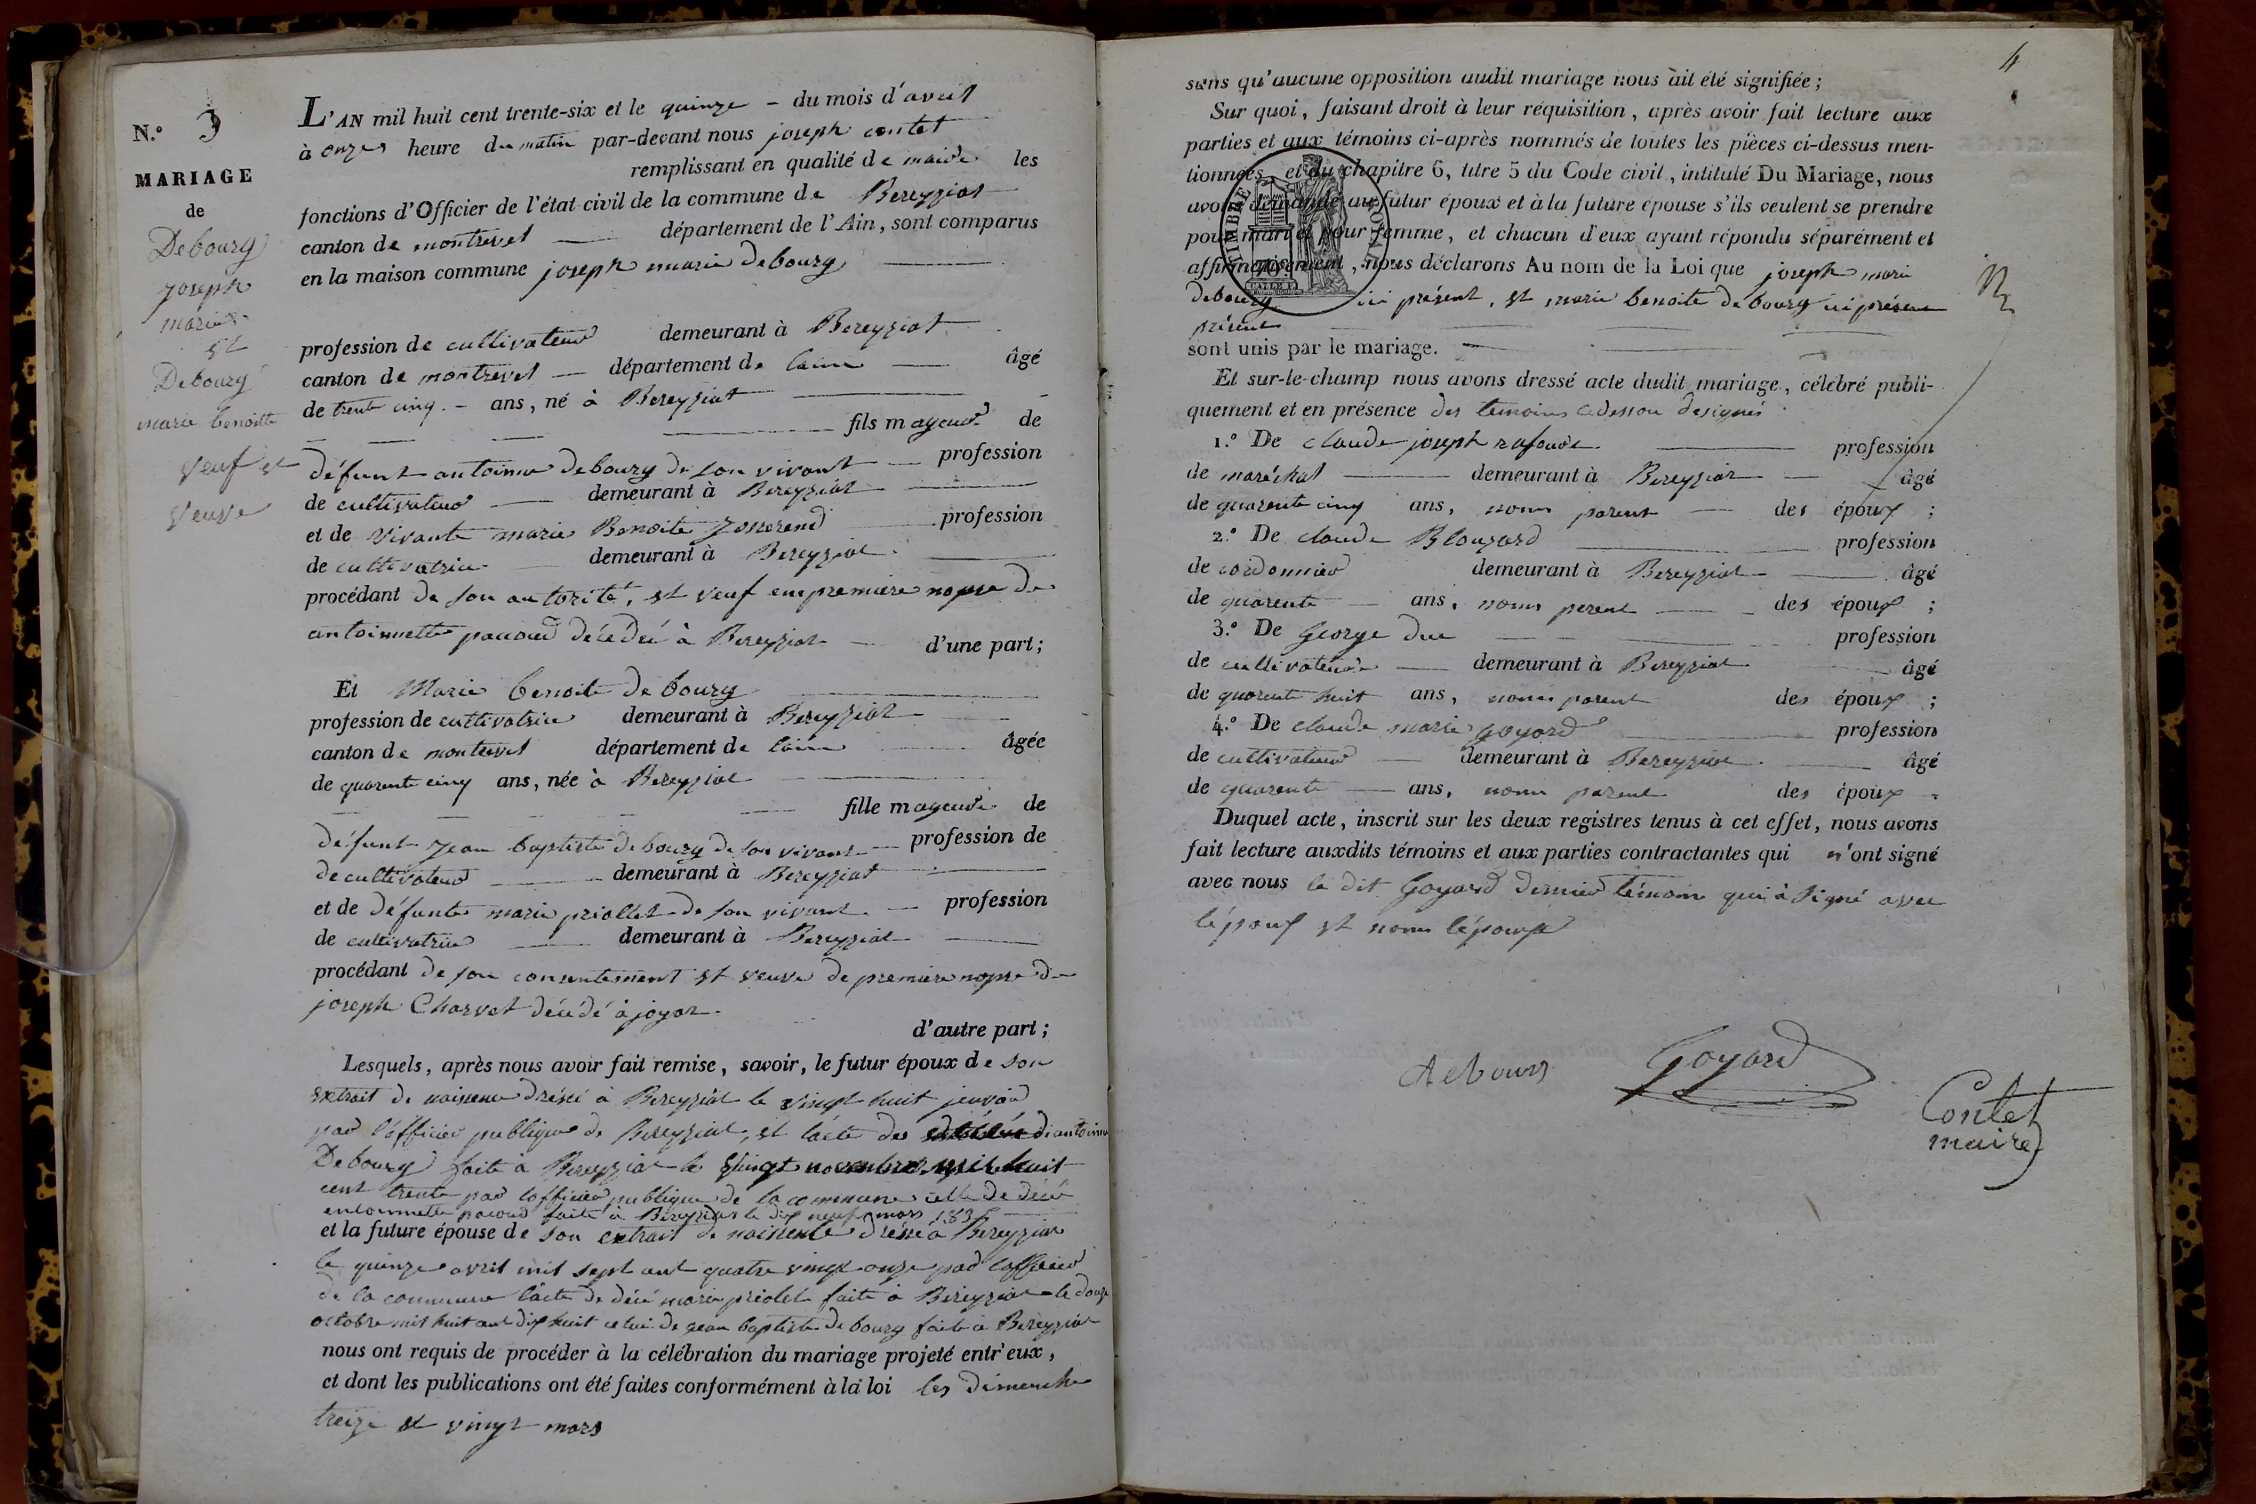 N.° 3
MARIAGE
de
Debourg
joseph
marie
et
Debourg
marie benoitte
veuf et
veuve
L'AN mil huit cent trente-six et le quinze - du mois d'avril
à onze heure du matin par-devant nous joseph contet
remplissant en qualité de maire les
fonctions d'Officier de l'état civil de la commune de Bereyziat
canton de montrevel département de l'Ain, sont comparus
en la maison commune joseph marie debourg
profession de cultivateur demeurant à Bereyziat
canton de montrevel département de lain âgé
de trente cinq - ans, né à Bereyziat
fils mageur de
défunt antoine debourg de son vivant profession
de cultivateur demeurant à Bereyziat
et de vivante marie Benoite profession
de cultivatrice demeurant à Bereyziat
procédant de son autorité, et veuf en premiere nopse de
antoinette décédée à Bereyziat d'une part;
Et Marie benoite debourg
profession de cultivatrice demeurant à Bereyziat
canton de montrevel département de lain âgée
de quarente cinq ans, née à Bereyziat
fille mageure de
défunt jean baptiste debourg de son vivant profession de
de cultivateur demeurant à Bereyziat
et de défunte marie priollet de son vivant profession
de cultivatrice demeurant à Bereyziat
procédant de son consentement et veuve de premiere nopse de
joseph Charvet décédé à
d'autre part;
Lesquels, après nous avoir fait remise, savoir, le futur époux de son
extrait de naissence dréssé à Bereyziat le vingt huit
par l'officier publique de Bereyziat, et lacte de d'antoine
Debourg faite à Bereyziat le vingt novembre mil huit
cent trente par lofficier publique de la commune celle de décé
faite à Bereyziat le dix neuf mars
et la future épouse de son extrait de naissence dréssé à Bereyziat
le quinze avril mil sept cent quatre vingt onze par lofficier
de la commune lacte de décé marie priolet faite à Bereyziat le douze
octobre mil huit cent dix huit celui de jean baptiste debourg faite à Bereyziat
nous ont requis de procéder à la célébration du mariage projeté entr'eux,
et dont les publications ont été faites conformément à la loi les dimenche
treize et vingt mars
4
sans qu'aucune opposition audit mariage nous ait été signifiée;
Sur quoi, faisant droit à leur réquisition, après avoir fait lecture aux
parties et aux témoins ci-après nommés de toutes les pièces ci-dessus men-
tionnées, et du chapitre 6, titre 5 du Code civil, intitulé Du Mariage, nous
avons demandé au futur époux et à la future épouse s'ils veulent se prendre
pour mari et pour femme, et chacun d'eux ayant répondu séparément et
affirmativement, nous déclarons Au nom de la Loi que joseph marie
debourg ici présent, et marie benoite debourg ici présen
présent
sont unis par le mariage.
Et sur-le-champ nous avons dressé acte dudit mariage, célébré publi-
quement et en présence des temoins cidessou designés
1.° De claude joseph profession
de maréchal demeurant à Bereyziat âgé
de quarente cinq ans, nonm parent des époux;
2.° De claude Blouzard profession
de cordonnier demeurant à Bereyziat âgé
de quarente ans, nonm perent des époux;
3.° De George duc profession
de cultivateur demeurant à Bereyziat âgé
de quarente huit ans, nonm parent des époux;
4.° De claude marie goyard profession
de cultivateur demeurant à Bereyziat âgé
de quarente ans, nonm parent des époux
Duquel acte, inscrit sur les deux registres tenus à cet effet, nous avons
fait lecture auxdits témoins et aux parties contractantes qui n'ont signé
avec nous le dit Goyard dernier témoin qui à signé avec
lépoux et nonm lépouse
debourg
Goyard
Contet
maire
TIMBRE ROYAL